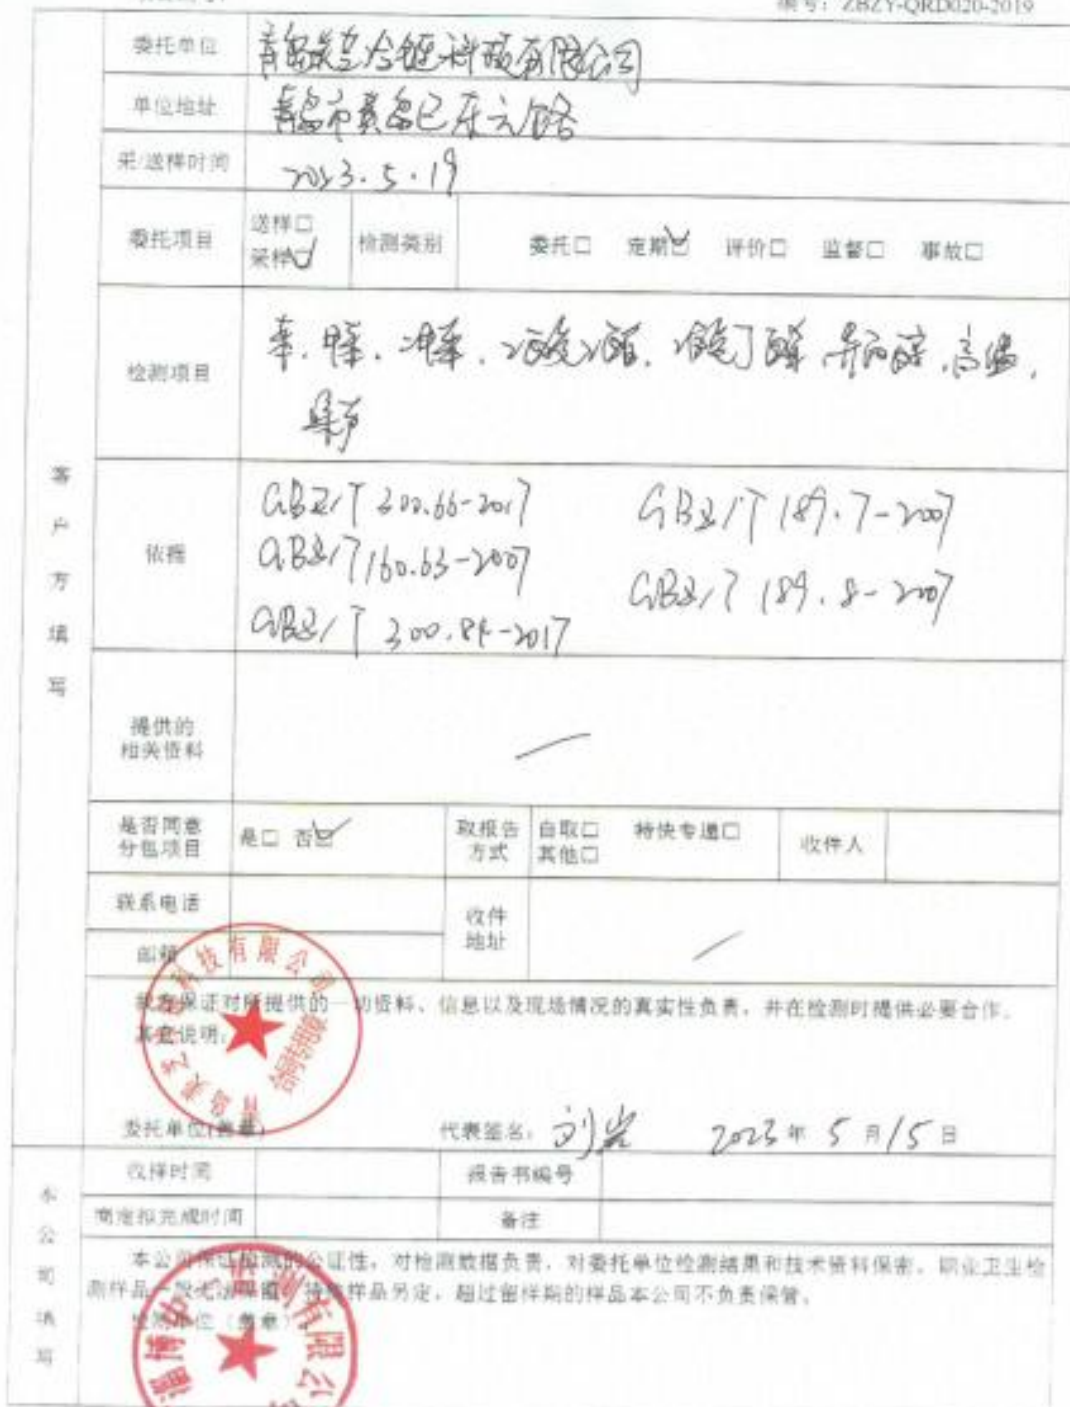 编号：ZBZY-QRD020-2019
委托单位 青岛美艺冷链科技有限公司
单位地址 青岛市黄岛区
采/送样时间 2023.5.19
委托项目 送样□ 采样☑ 检测类别 委托□ 定期☑ 评价□ 监督□ 事故□
检测项目 苯、甲苯、二甲苯、乙酸乙酯、乙酸丁酯、异丙醇、高温、
噪声
客户方填写
依据 GBZ/T 300.66-2017 GBZ/T 189.7-2007
GBZ/T 160.63-2007 GBZ/T 189.8-2007
GBZ/T 300.84-2017
提供的
相关资料
是否同意
分包项目 是□ 否☑ 取报告
方式 自取□ 特快专递□
其他□ 收件人
联系电话 收件
地址
邮箱
我方保证对所提供的一切资料、信息以及现场情况的真实性负责，并在检测时提供必要合作。
其它说明：
委托单位(盖章) 代表签名：刘岩 2023年5月15日
收样时间 报告书编号
商定拟完成时间 备注
本公司填写
本公司保证检测的公证性，对检测数据负责，对委托单位检测结果和技术资料保密。职业卫生检
测样品一般无法保留，特殊样品另定，超过留样期的样品本公司不负责保管。
检测单位（盖章）